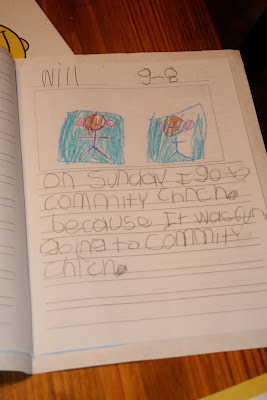 Will 9-8
on Sunday I go to
commity chrch.
because It was
going to commity
chrch.